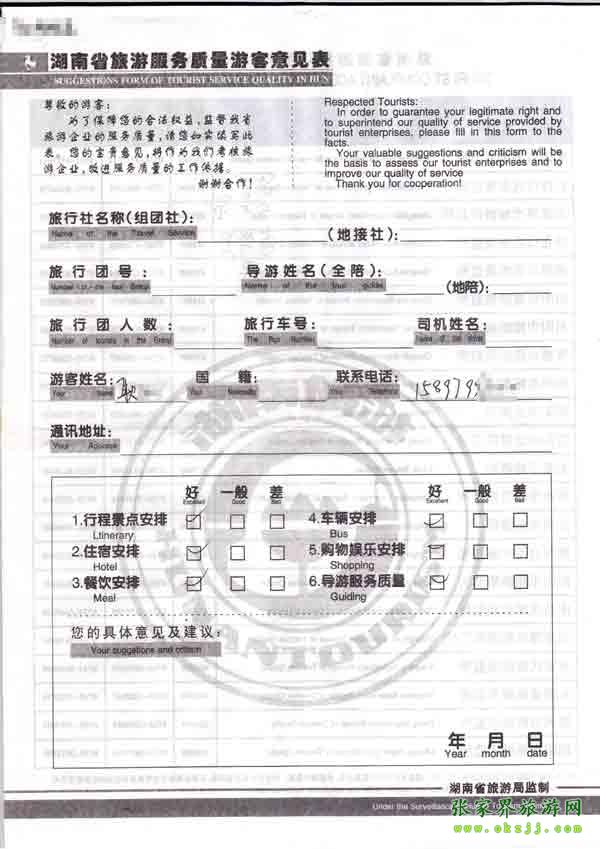 湖南省旅游服务质量游客意见表
SUGGESTIONS FORM OF TOURIST SERVICE QUALITY IN HUN
尊敬的游客:
为了保障您的合法权益,监督我省
旅游企业的服务质量,请您如实填写此
表。您的宝贵意见,将作为我们考核旅
游企业,改进服务质量的工作依据。
谢谢合作!
Respected Tourists:
In order to guarantee your legitimate right and
to superintend our quality of service provided by
tourist enterprises, please fill in this form to the
facts.
Your valuable suggestions and criticism will be
the basis to assess our tourist enterprises and to
improve our quality of service
Thank you for cooperation!
旅行社名称(组团社): (地接社):
Name of the Travel Service
旅行团号: 导游姓名(全陪): (地陪):
Name of the tour guide
旅行团人数: 旅行车号: 司机姓名:
Number of tourists in the Group The Bus Number
游客姓名: 耿 国籍: 联系电话: 1589799
Your Name Your Nationality Your Telephone
通讯地址:
Your Address
好 一般 差 好 一般 差
Excellent Good Bad Excellent Good Bad
1.行程景点安排 4.车辆安排
Ltinerary Bus
2.住宿安排 5.购物娱乐安排
Hotel Shopping
3.餐饮安排 6.导游服务质量
Meal Guiding
您的具体意见及建议:
Your suggetions and criticism
年 月 日
Year month date
湖南省旅游局监制
Under the Surveillance
张家界旅游网
www.okzjj.com